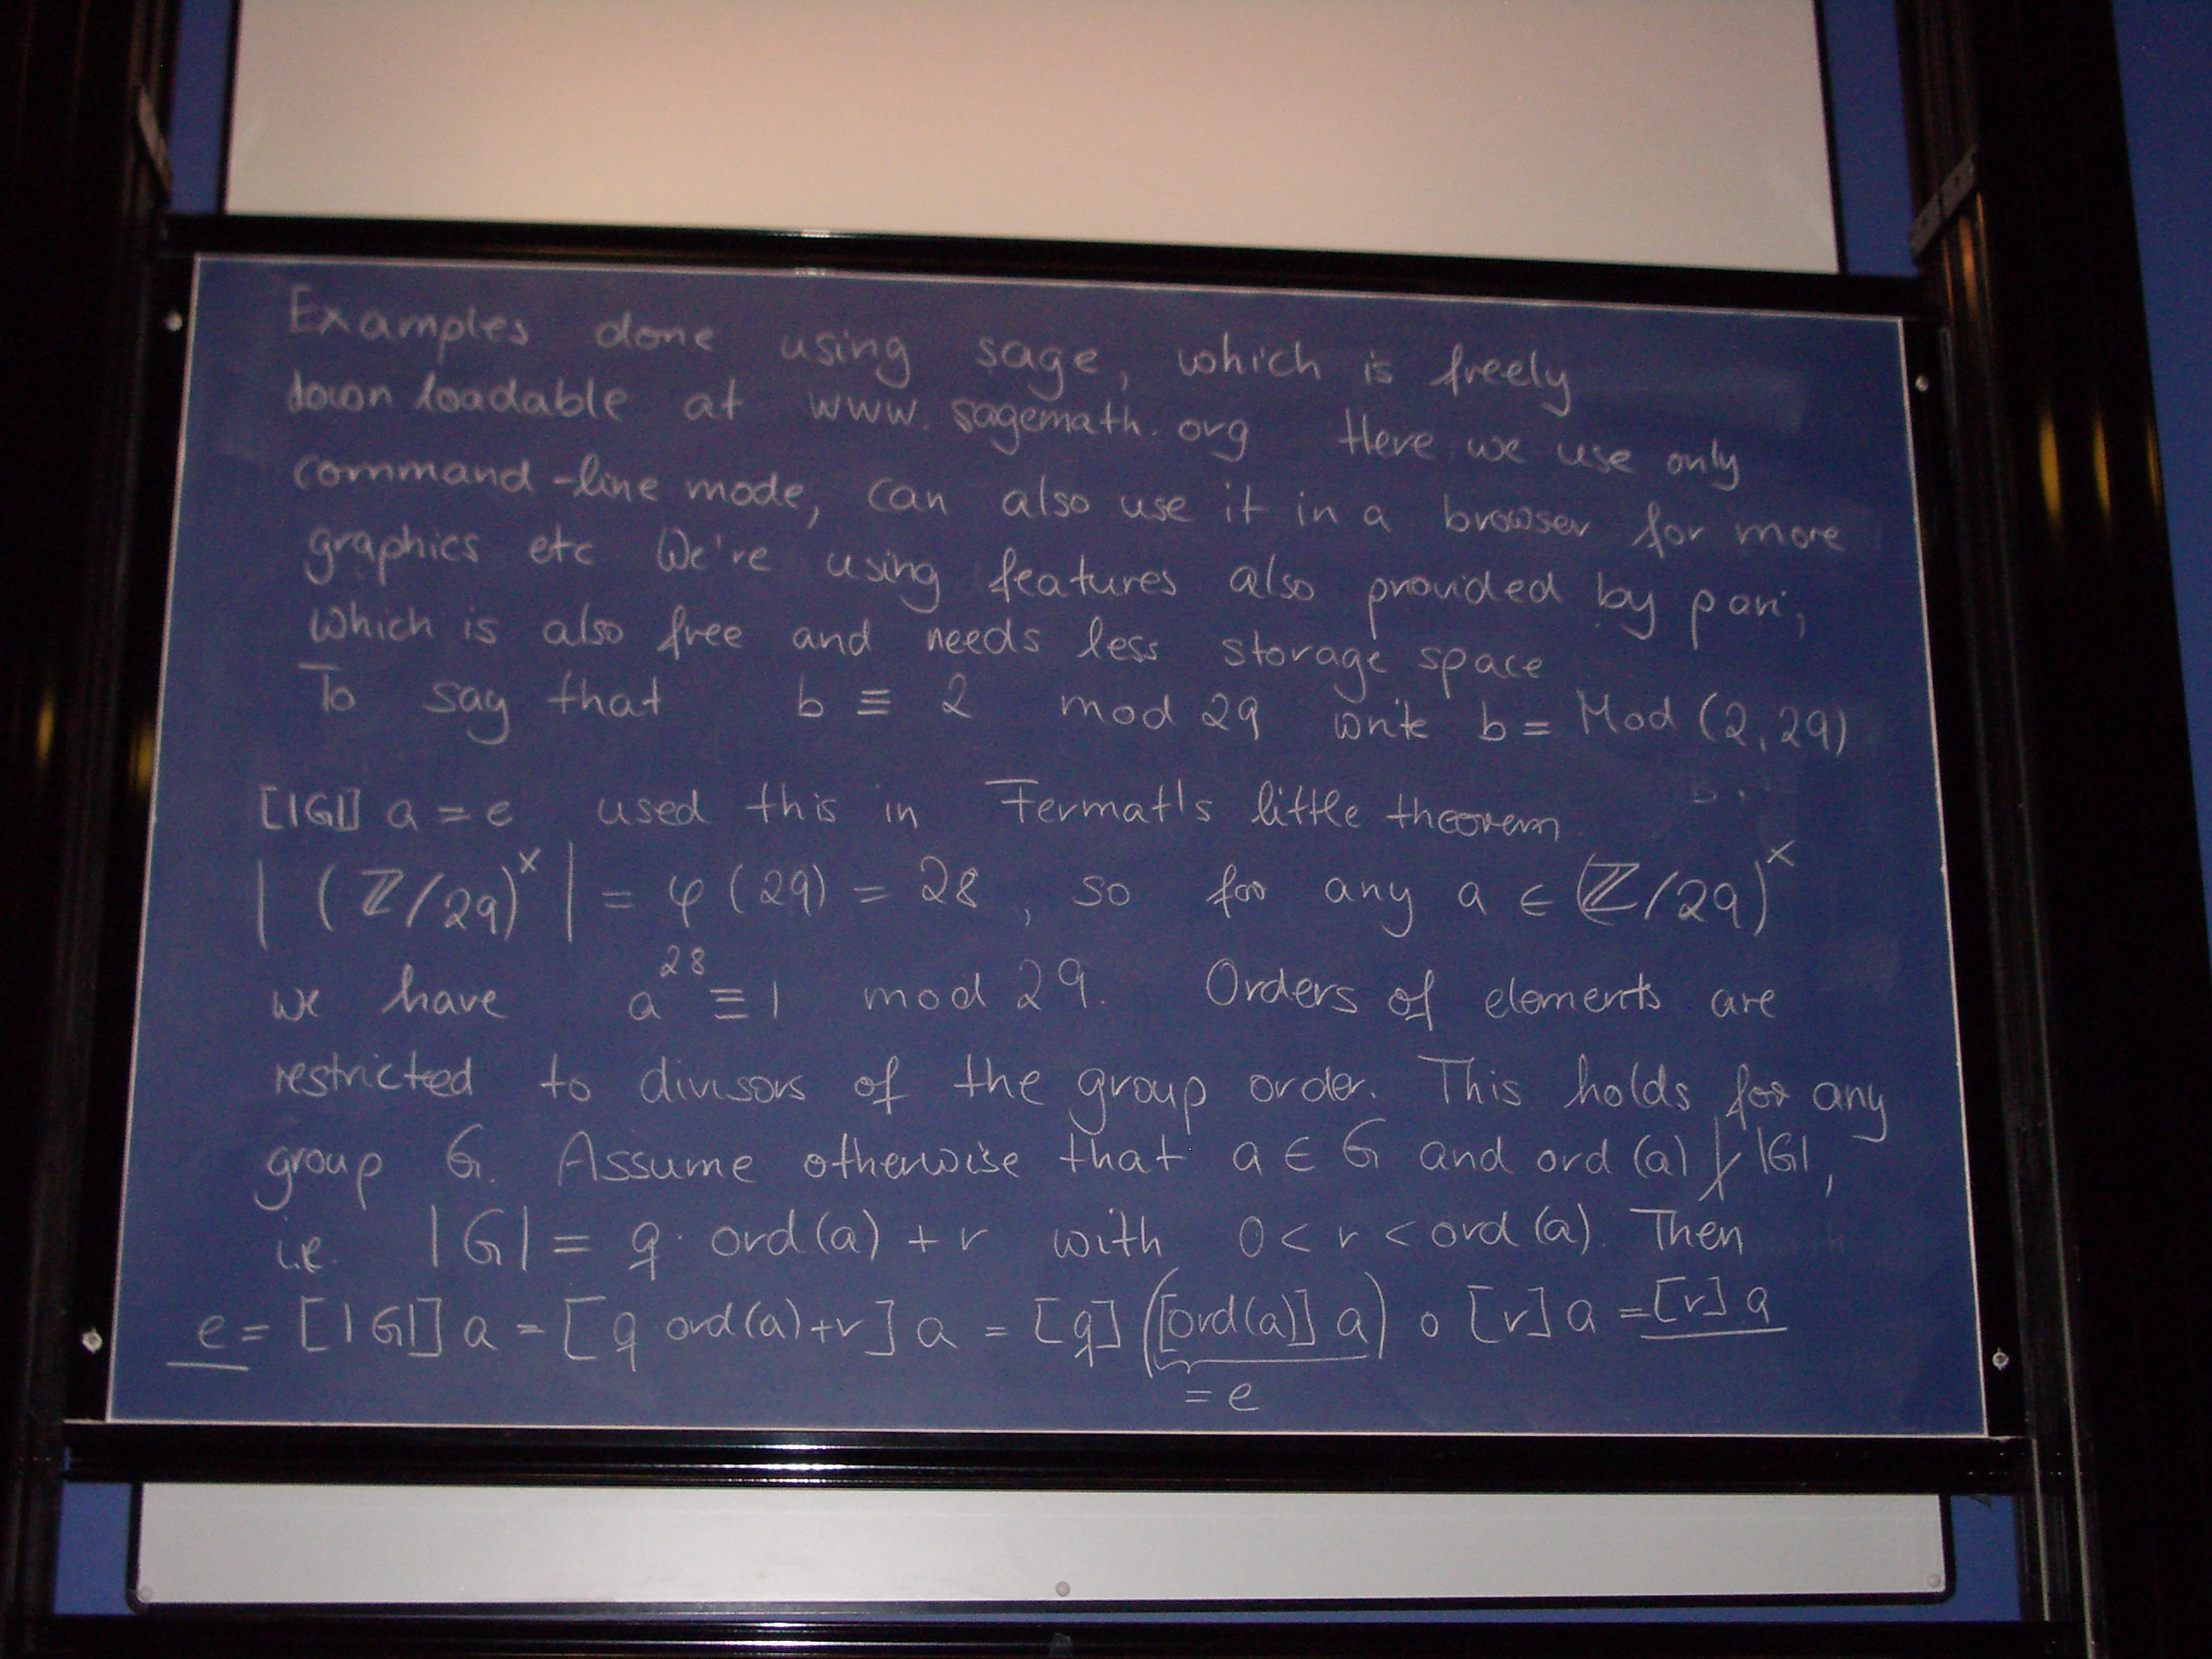 Examples done using sage, which is freely
downloadable at www.sagemath.org Here we use only
command-line mode, can also use it in a browser for more
graphics etc We're using features also provided by pari,
which is also free and needs less storage space
To say that b ≡ 2 mod 29 write b = Mod (2,29)
[|G|] a = e used this in Fermat's little theorem
| (ℤ/29)^× | = φ(29) = 28, so for any a ∈ (ℤ/29)^×
we have a^28 ≡ 1 mod 29. Orders of elements are
restricted to divisors of the group order. This holds for any
group G. Assume otherwise that a ∈ G and ord(a) ∤ |G|,
i.e. |G| = q · ord(a) + r with 0 < r < ord(a). Then
e = [|G|] a = [q ord(a)+r] a = [q] ([ord(a)] a) ∘ [r] a = [r] a
= e